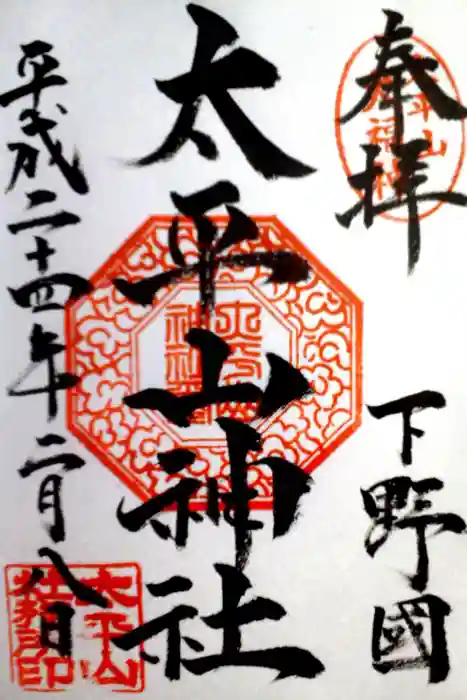 奉拝
下野國
太平山神社
平成二十四年二月八日
太平山
神社
太平山
社務所印